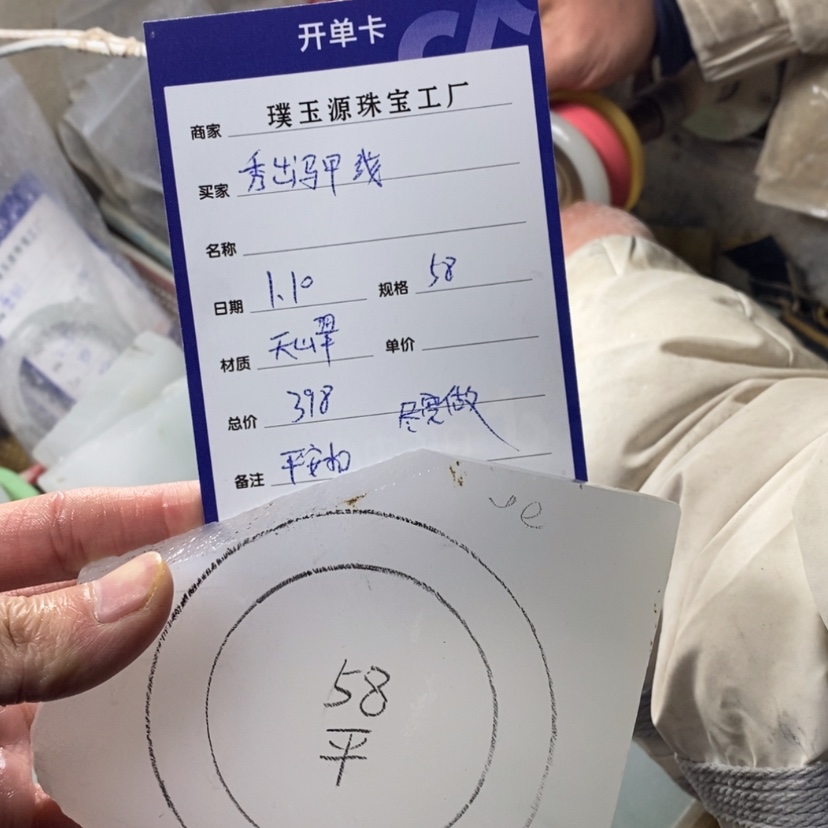 开单卡
商家 璞玉源珠宝工厂
买家 秀出马甲线
名称
日期 1.10 规格 58
材质 天山翠 单价
总价 398 尽宽做
备注 平安扣
58
平